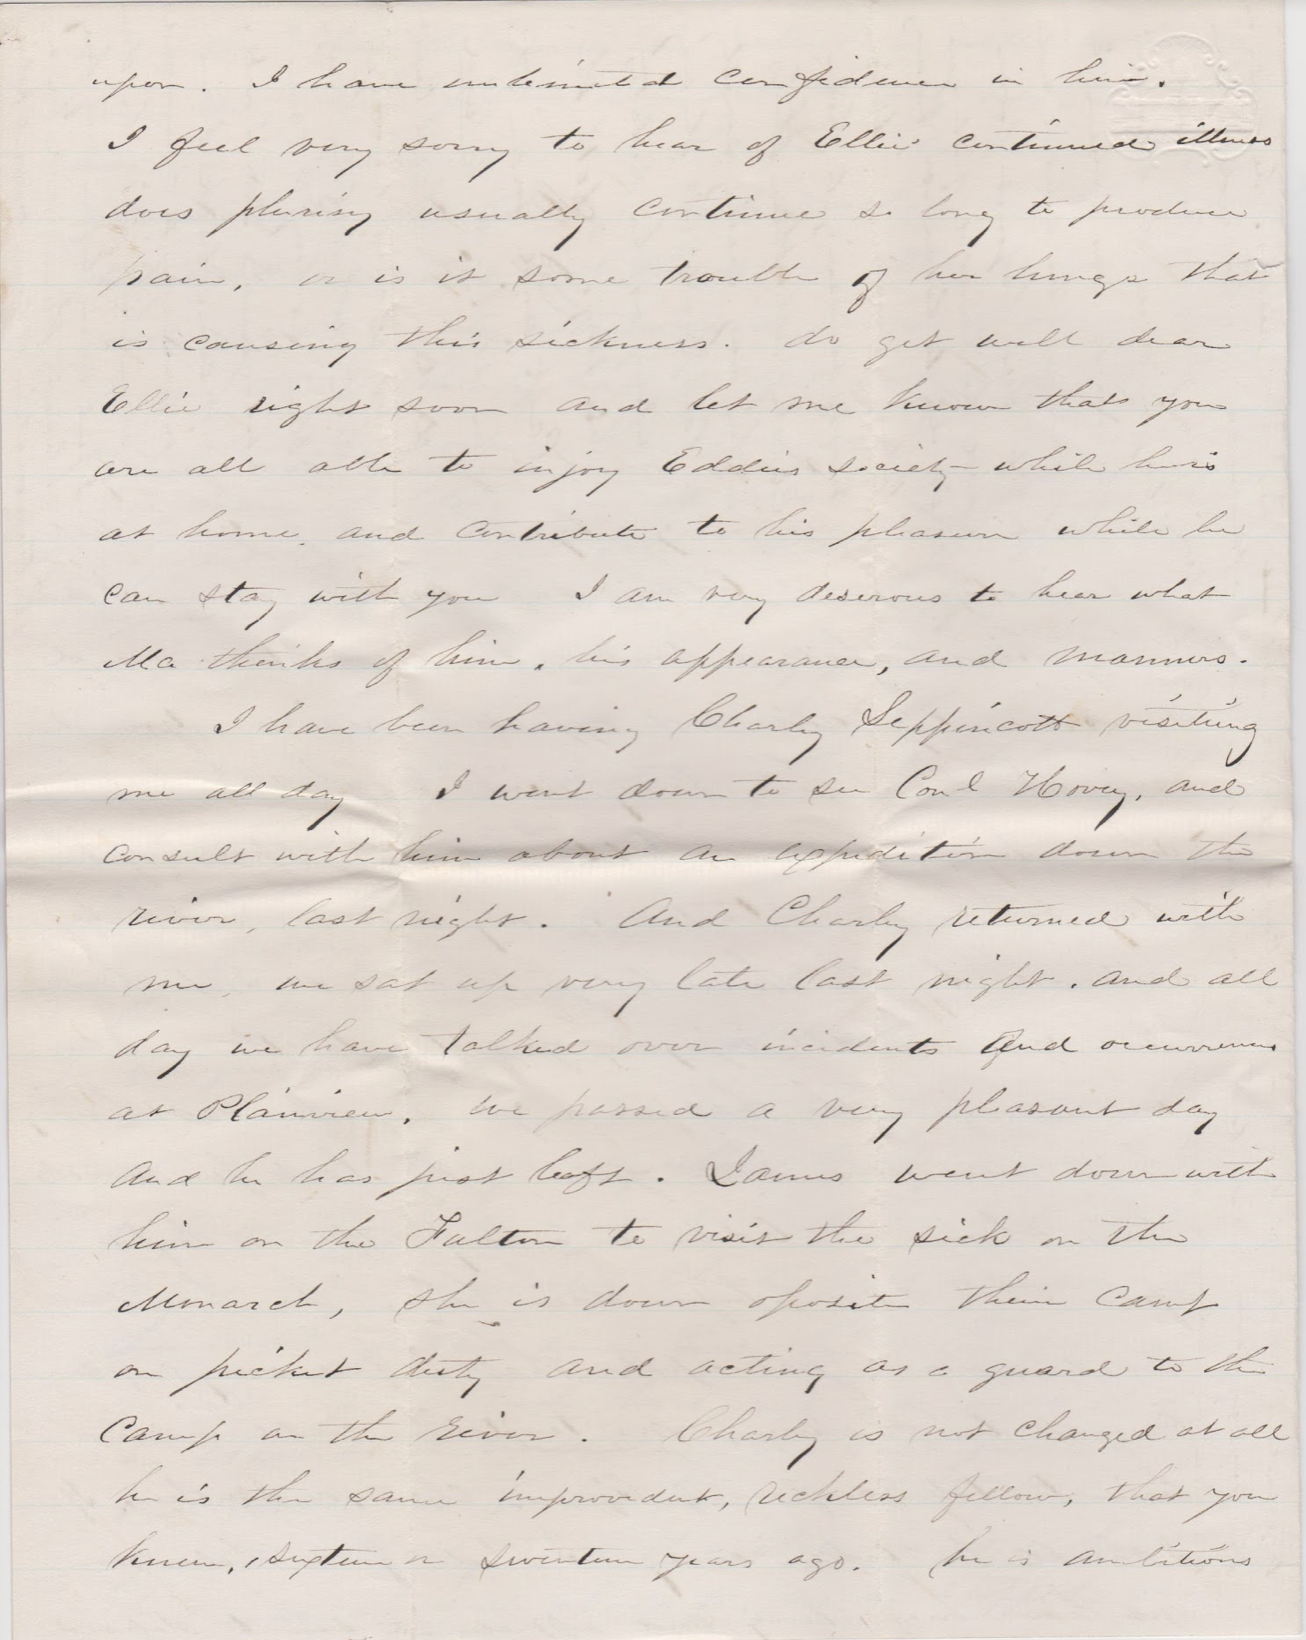 upon. I have unlimited confidence in him.
I feel very sorry to hear of Ellie continued illness
does plurisy usually continue so long to produce
pain, or is it some trouble of her lungs that
is causing this sickness. do get well dear
Ellie right soon and let me know that you
are all able to injoy Eddies society while he is
at home, and contribute to his pleasure while he
can stay with you I am very deserous to hear what
Ma thinks of him, his appearance, and manners.
I have been having Charly Leppincott visiting
me all day I went down to see Conl Hovey, and
consult with him about an expedition down the
river, last night. And Charly returned with
me, we sat up very late last night. and all
day we have talked over incidents and occurrences
at Plainview. we passed a very pleasant day
and he has just left. James went down with
him on the Fulton to visit the sick on the
Monarch, she is down oposite their camp
on picket duty and acting as a guard to the
camp on the river. Charly is not changed at all
he is the same improvident, reckless fellow, that you
knew, sixteen or seventeen years ago. he is ambitious